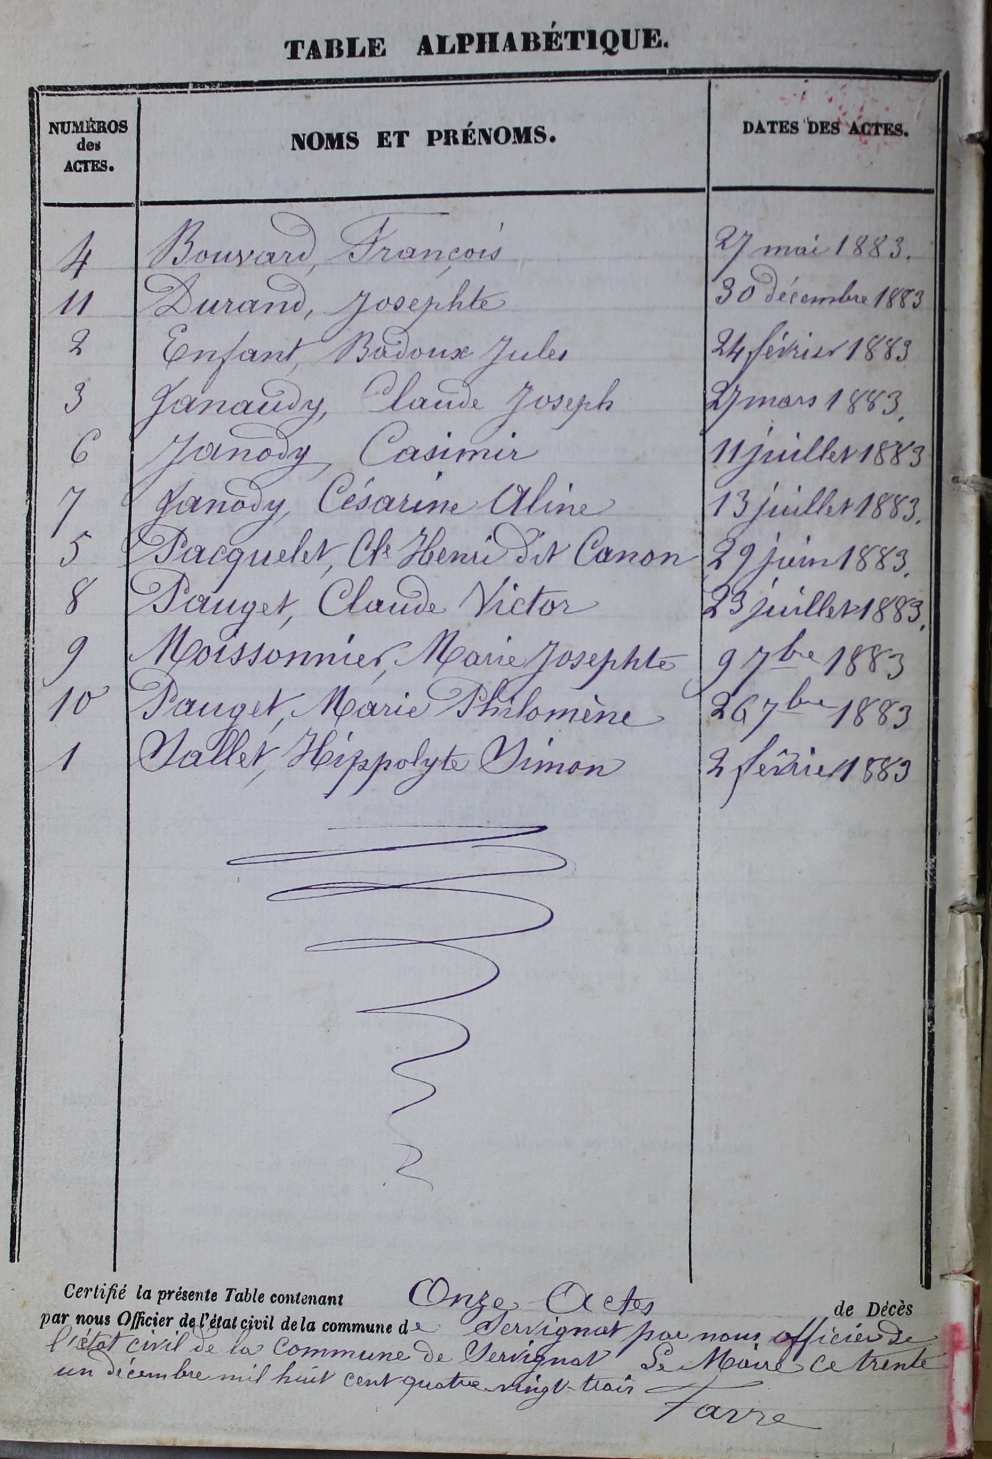 TABLE ALPHABÉTIQUE.
NUMÉROS des ACTES. NOMS ET PRÉNOMS. DATES DES ACTES.
4 Bouvard, François 27 mai 1883.
11 Durand, Josephte 30 décembre 1883
2 Enfant, Badoux Jules 24 février 1883
3 Janaudy, Claude Joseph 27 mars 1883.
6 Janody, Casimir 11 juillet 1883
7 Janody, Césarine Aline 13 juillet 1883.
5 Pacquelet, Cde Henri dit Canon 29 juin 1883.
8 Pauget, Claude Victor 23 juillet 1883.
9 Moissonnier, Marie Josephte 9 7bre 1883
10 Pauget, Marie Philomène 26 7bre 1883
1 Sallet, Hippolyte Simon 2 février 1883
Certifié la présente Table contenant Onze Actes de Décès
par nous Officier de l'état civil de la commune de Servignat par nous officier de
l'état civil de la commune de Servignat Le Maire ce trente
un décembre mil huit cent quatre-vingt-trois
Favre